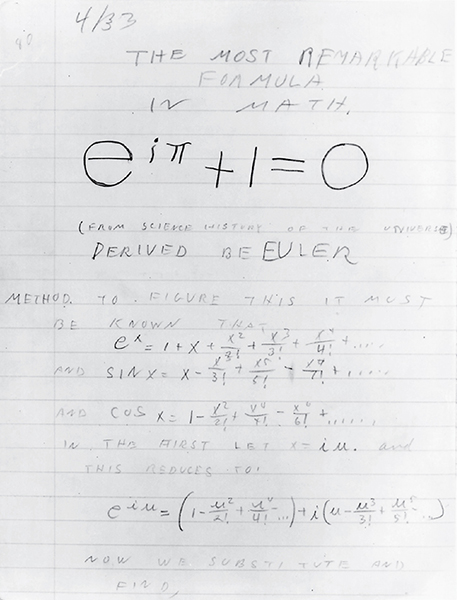 4/33
THE MOST REMARKABLE
FORMULA
IN MATH.
e^{iπ} + 1 = 0
(FROM SCIENCE HISTORY OF THE UNIVERSE)
DERIVED BE EULER
METHOD. TO FIGURE THIS IT MUST
BE KNOWN THAT
e^x = 1 + x + x^2/2! + x^3/3! + x^4/4! + ....
AND SIN x = x - x^3/3! + x^5/5! - x^7/7! + .....
AND COS x = 1 - x^2/2! + x^4/4! - x^6/6! + ......
IN THE FIRST LET x = iu. and
THIS REDUCES TO!
e^{iu} = (1 - u^2/2! + u^4/4! - ...) + i(u - u^3/3! + u^5/5! - ..)
NOW WE SUBSTITUTE AND
FIND,